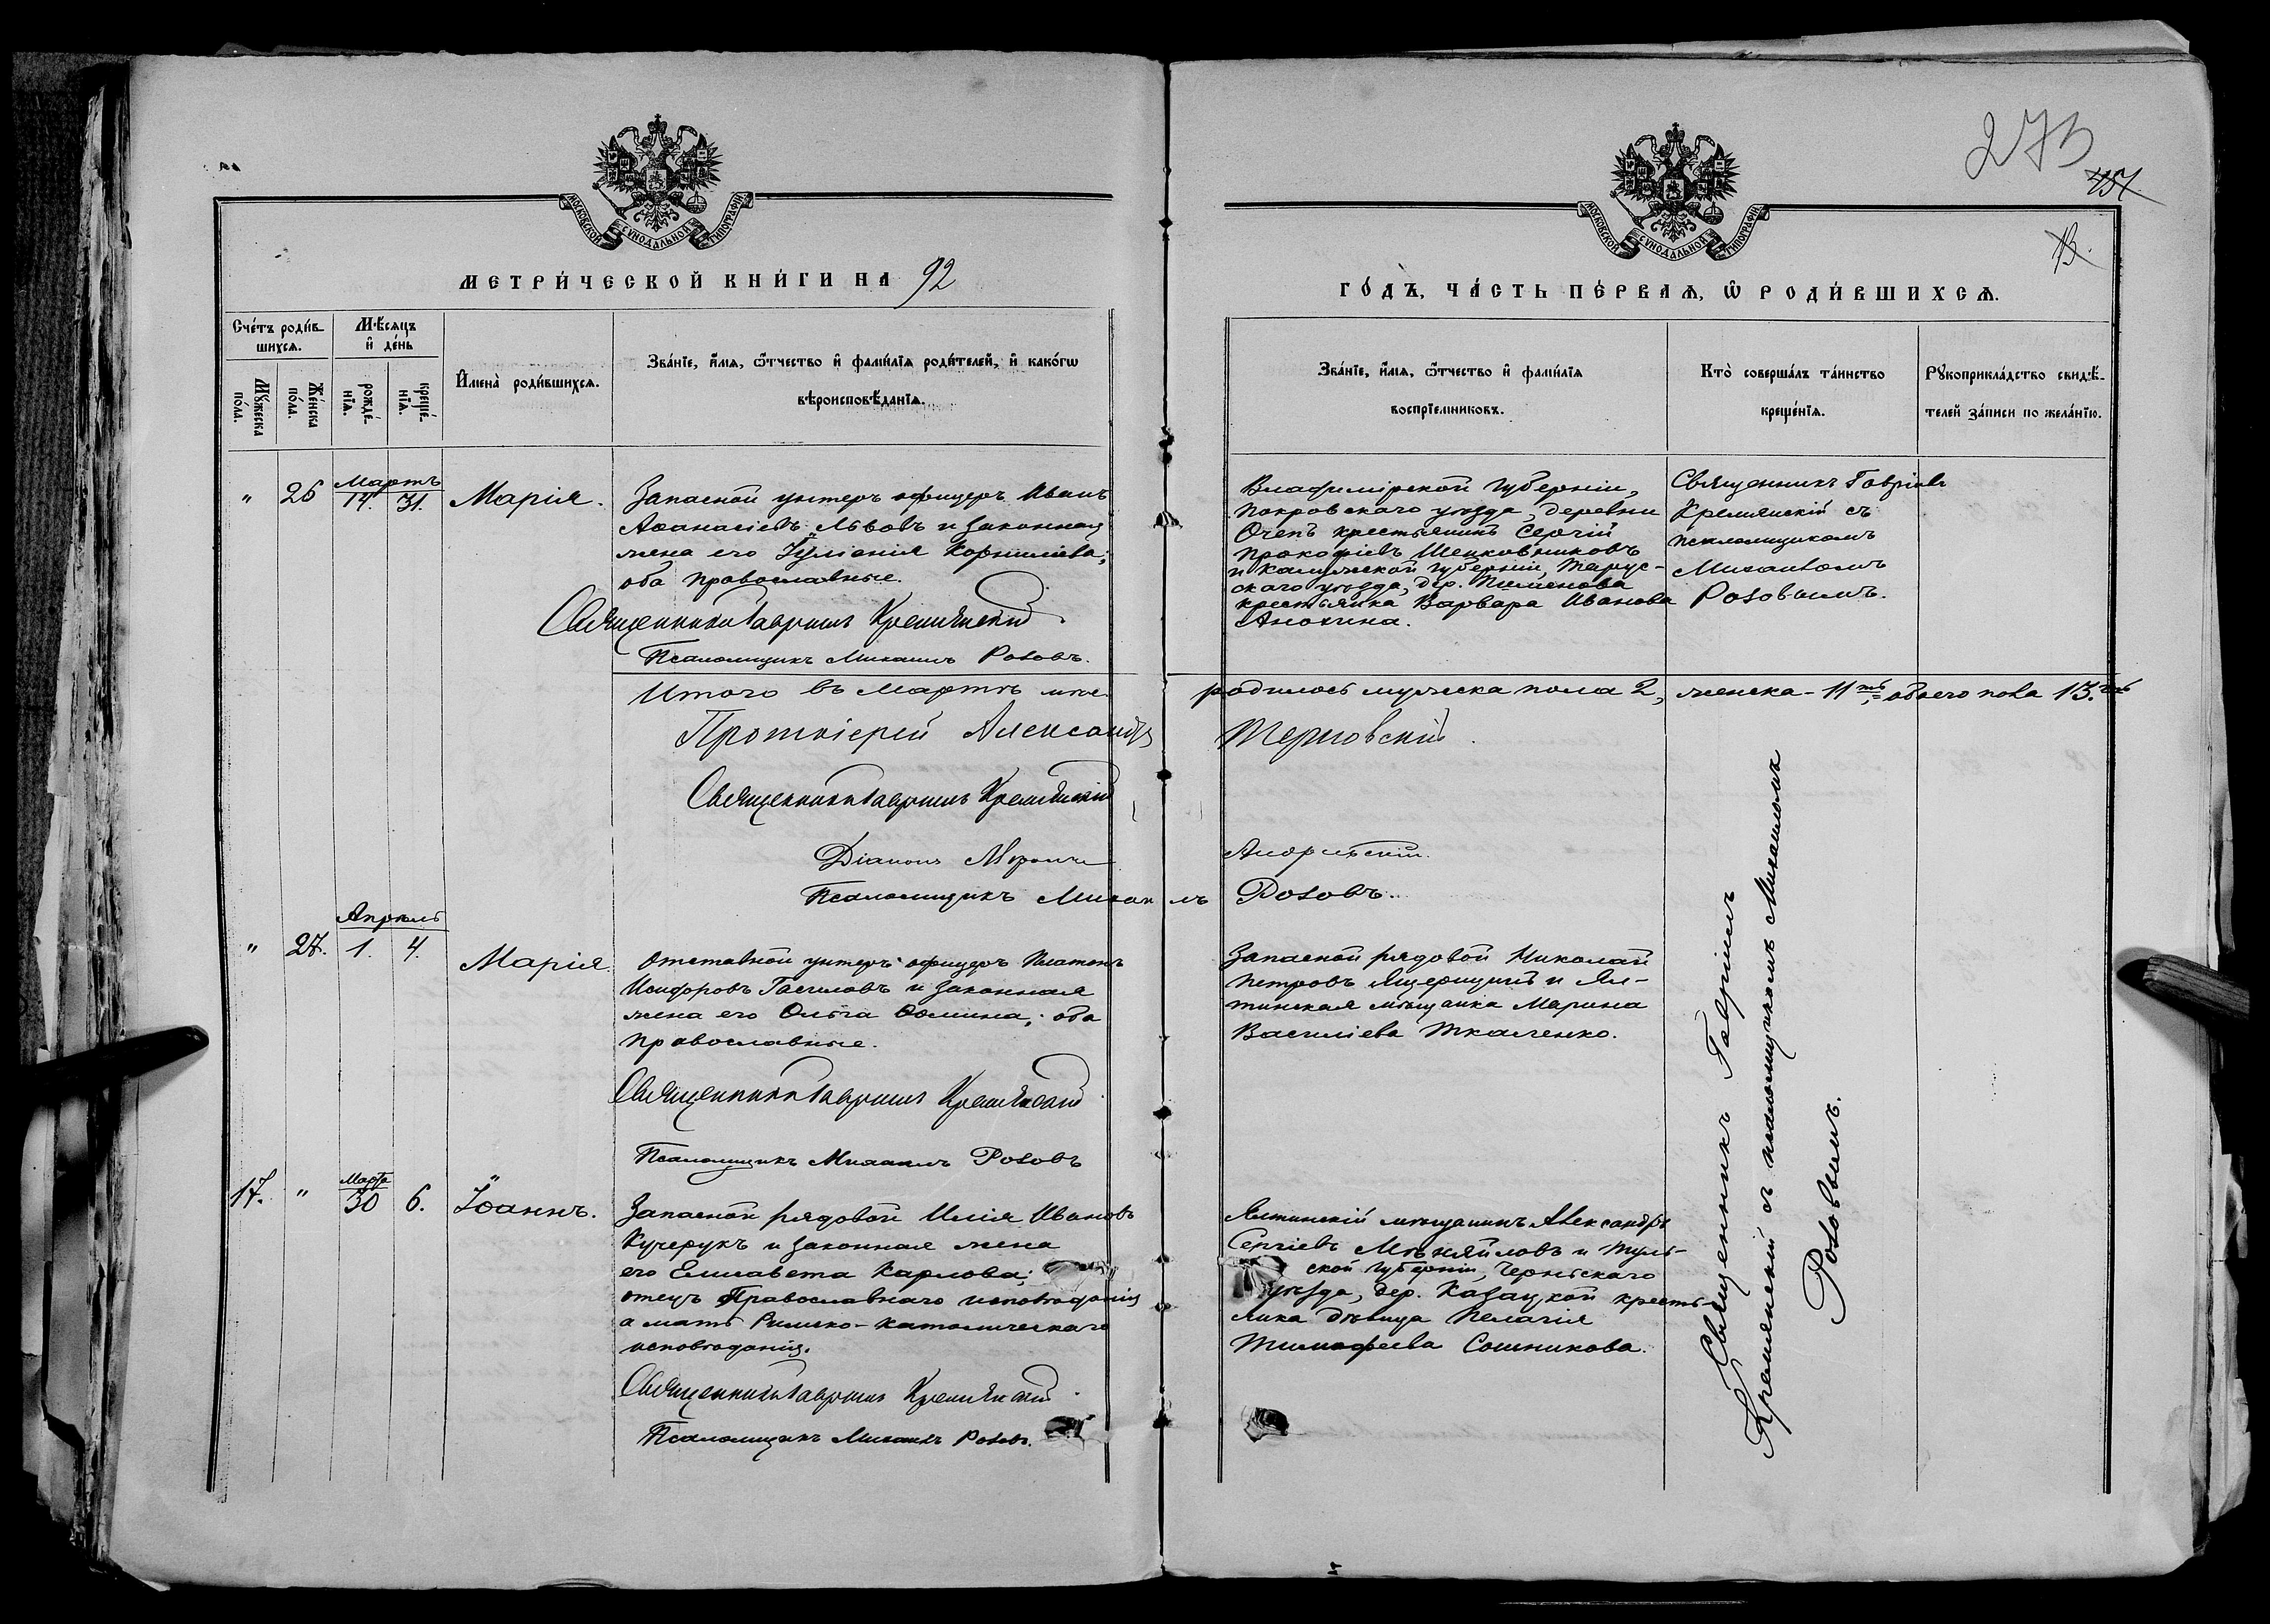 273
157
13.
МОСКОВСКОЙ СѴНОДАЛЬНОЙ ТИПОГРАФІИ
МОСКОВСКОЙ СѴНОДАЛЬНОЙ ТИПОГРАФІИ
МЕТРИ́ЧЕСКОЙ КНИ́ГИ НА 92
ГО́ДЪ, ЧА́СТЬ ПЕ́РВАѦ, Ѡ҆ РОДИ́ВШИХСѦ.
Сче́тъ роди́в-
шихсѧ.
Мѣ́сяцъ
и҆ де́нь
Му́жеска
по́ла.
Же́нска
по́ла.
рожде́-
нїѧ.
креще́-
нїѧ.
И҆мена̀ роди́вшихсѧ.
Зва́нїе, и҆́мѧ, ѻ҆́тчество и҆ фами́лїѧ роди́телей, и҆ како́гѡ
вѣроисповѣ́данїѧ.
Зва́нїе, и҆́мѧ, ѻ҆́тчество и҆ фами́лїѧ
воспрїе́мниковъ.
Кто̀ соверша́лъ та́инство
креще́нїѧ.
Рꙋкоприкла́дство свидѣ́-
телей за́писи по жела́нїю.
Мартъ
" 26 14. 31. Марія.
Запасной унтеръ офицеръ Иванъ
Аѳанасіевъ Львовъ и законная
жена его Іуліанія Корниліева;
оба православные.
Священникъ Гавриилъ Кремянскій
Псаломщикъ Михаилъ Розовъ.
Владимірской губерніи,
Покровскаго уѣзда, деревни
крестьянинъ Сергій
Прокофіевъ
и Калужской губерніи, Тарус-
скаго уѣзда, дер. Пименова
крестьянка Варвара Иванова
Анохина.
Священникъ Гавріилъ
Кремянскій съ
псаломщикомъ
Михаиломъ
Розовымъ.
Итого въ Мартѣ мѣс. родилось мужеска пола 2, женска - 11ть, обоего пола 13.ть
Протоіерей Александръ Терновскій.
Священникъ Гавриилъ Кремянскій
Діаконъ
Псаломщикъ Михаилъ Розовъ.
Апрѣль
" 27. 1. 4. Марія.
Отставной унтеръ-офицеръ Платонъ
Исидоровъ и законная
жена его Ольга Ѳомина; оба
православные.
Священникъ Гавриилъ Кремянскій
Псаломщикъ Михаилъ Розовъ
Запасной рядовой Николай
Петровъ и Ял-
тинская мѣщанка Марина
Василіева Ткаченко.
Священникъ Гавріилъ
Кремянскій съ псаломщикомъ Михаиломъ
Розовымъ.
Марта
17. " 30 6. Іоаннъ.
Запасной рядовой Илія Ивановъ
Кучерукъ и законная жена
его Елисавета Карлова;
отецъ Православнаго исповѣданія
а мать Римско-католическаго
исповѣданія.
Священникъ Гавриилъ Кремянскій
Псаломщикъ Михаилъ Розовъ.
Ялтинскій мѣщанинъ Александръ
Сергіевъ и Туль-
ской губерніи, Чернскаго
уѣзда, дер. Казацкой кресть-
янка дѣвица Пелагія
Тимофеева Сошникова.